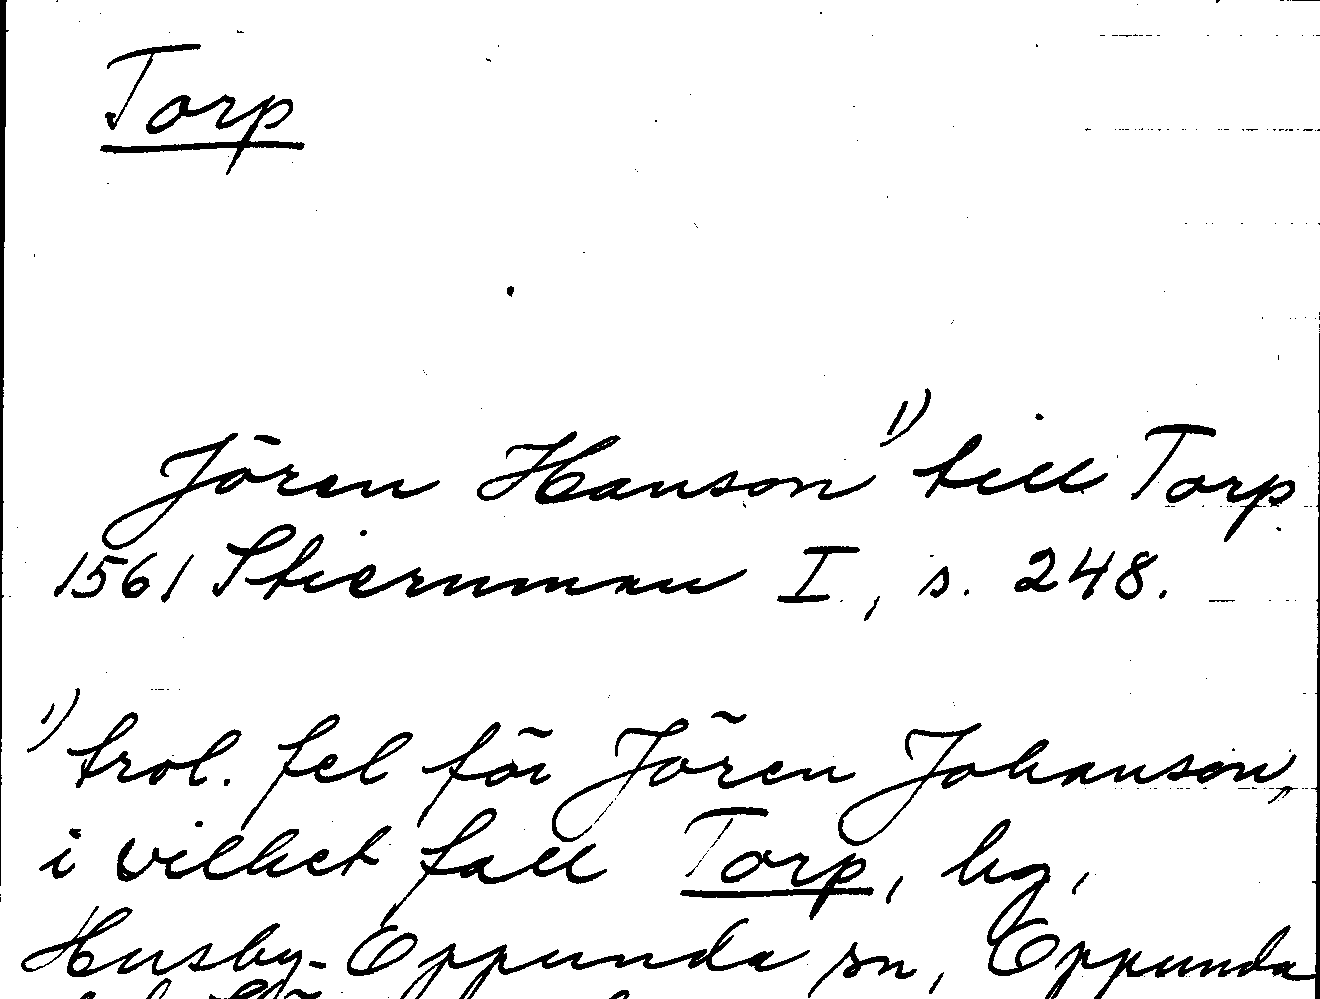 Torp
Jören Hanson ¹⁾ till Torp
1561 Stiernman I, s. 248.
¹⁾ trol. fel för Jören Johanson,
i vilket fall Torp, by,
Husby-Oppunda sn, Oppunda